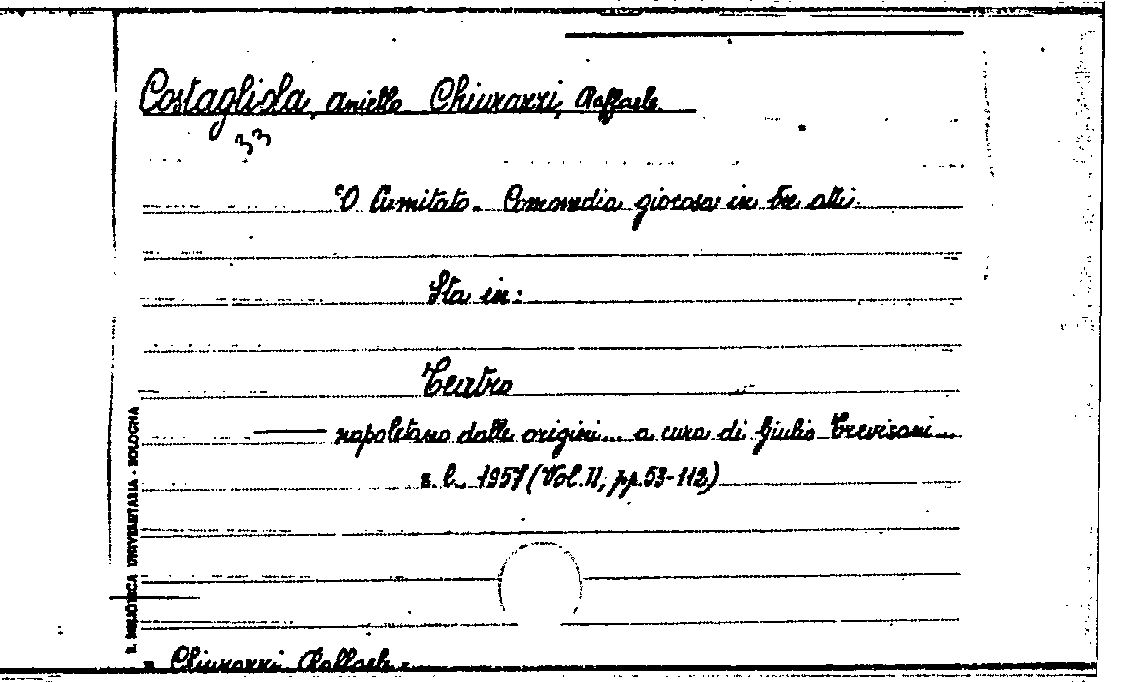 Costagliola, Aniello Chiurazzi, Raffaele
33
'O Cumitato. Commedia giocosa in tre atti.
Sta in:
Teatro
——— napoletano dalle origini... a cura di Giulio Trevisani...
s. l. 1957 (Vol. II, pp. 53-112)
R. BIBLIOTECA UNIVERSITARIA - BOLOGNA
= Chiurazzi Raffaele =